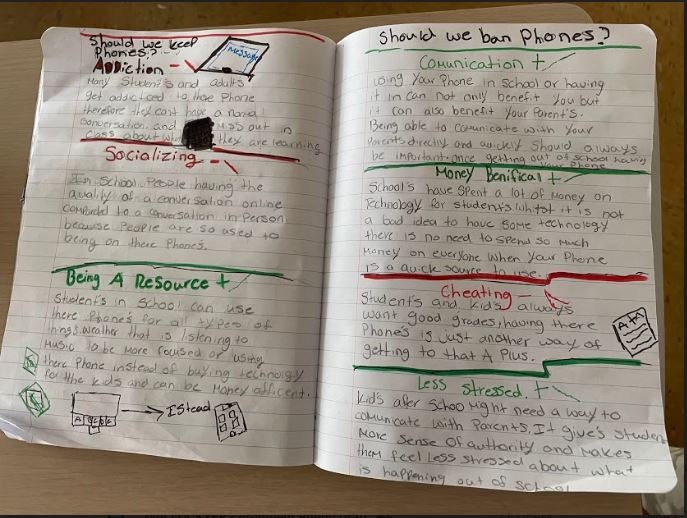 Should we keep
Phones?
Message
Addiction -
Many Student's and adults
get addicted to there Phone
therefore they cant have a normal
conversation. and miss out in
class about they are learning
Socializing -
In School People having the
quality of a conversation online
compared to a conversation in Person
because People are so used to
being on there Phone's.
Being A Resource +
Student's in School can use
there Phone's for all types of
things. weather that is listening to
Music to be More focused or using
there Phone instead of buying technology
for the kids and can be Money efficent.
A
IStead
Should we ban Phones?
Comunication +
Using Your Phone in School or having
it in can not only benefit You but
it can also benefit Your Parent's.
Being able to comunicate with Your
Parents directly and quickly Should always
be important. once getting out of School having
Your Phone
Money Benifical +
School's have spent a lot of Money on
technology for student's. whilst it is not
a bad idea to have Some technology
there is no need to spend so much
Money on everyone when Your Phone
is a quick source to use.
Cheating -
Student's and kid's always
want good grades, having there
Phone's is just another way of
getting to that A Plus.
A+
Less Stressed. +
Kid's after School Might need a way to
comunicate with Parents. It give's studen
More sense of authority and Makes
them feel Less stressed about what
is happening out of School